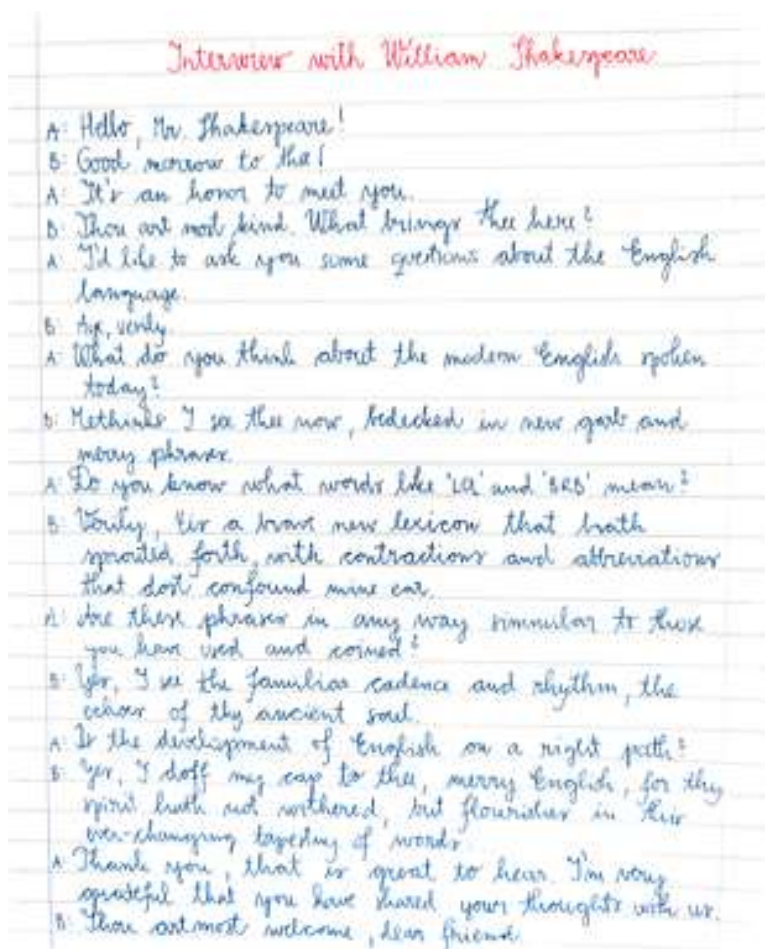 Interview with William Shakespeare
A: Hello, Mr. Shakespeare!
B: Good morrow to thee!
A: It's an honor to meet you.
B: Thou art most kind. What brings thee here?
A: I'd like to ask you some questions about the English
language.
B: Aye, verily.
A: What do you think about the modern English spoken
today?
B: Methinks I see thee now, bedecked in new garb and
merry phrases.
A: Do you know what words like 'LOL' and 'BRB' mean?
B: Verily, tis a brave new lexicon that hath
sprouted forth, with contractions and abbreviations
that dost confound mine ear.
A: Are these phrases in any way simmular to those
you have used and coined?
B: Yes, I see the familiar cadence and rhythm, the
echoes of thy ancient soul.
A: Is the development of English on a right path?
B: Yes, I doff my cap to thee, merry English, for thy
spirit hath not withered, but flourishes in this
ever-changing tapestry of words.
A: Thank you, that is great to hear. I'm very
grateful that you have shared your thoughts with us.
B: Thou art most welcome, dear friend.